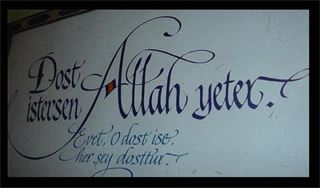 Dost
istersen Allah yeter.
Evet, O dost ise,
her şey dosttur.